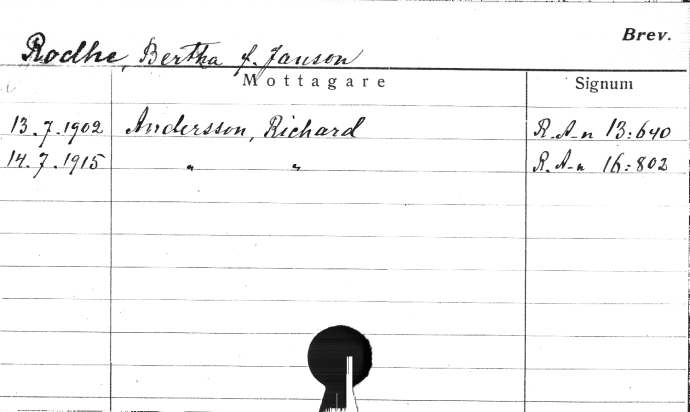 Brev.
Rodhe, Bertha f. Janson
Mottagare Signum
13.7.1902 Andersson, Richard R.A-n 13:640
14.7.1915 " " R.A-n 16:802